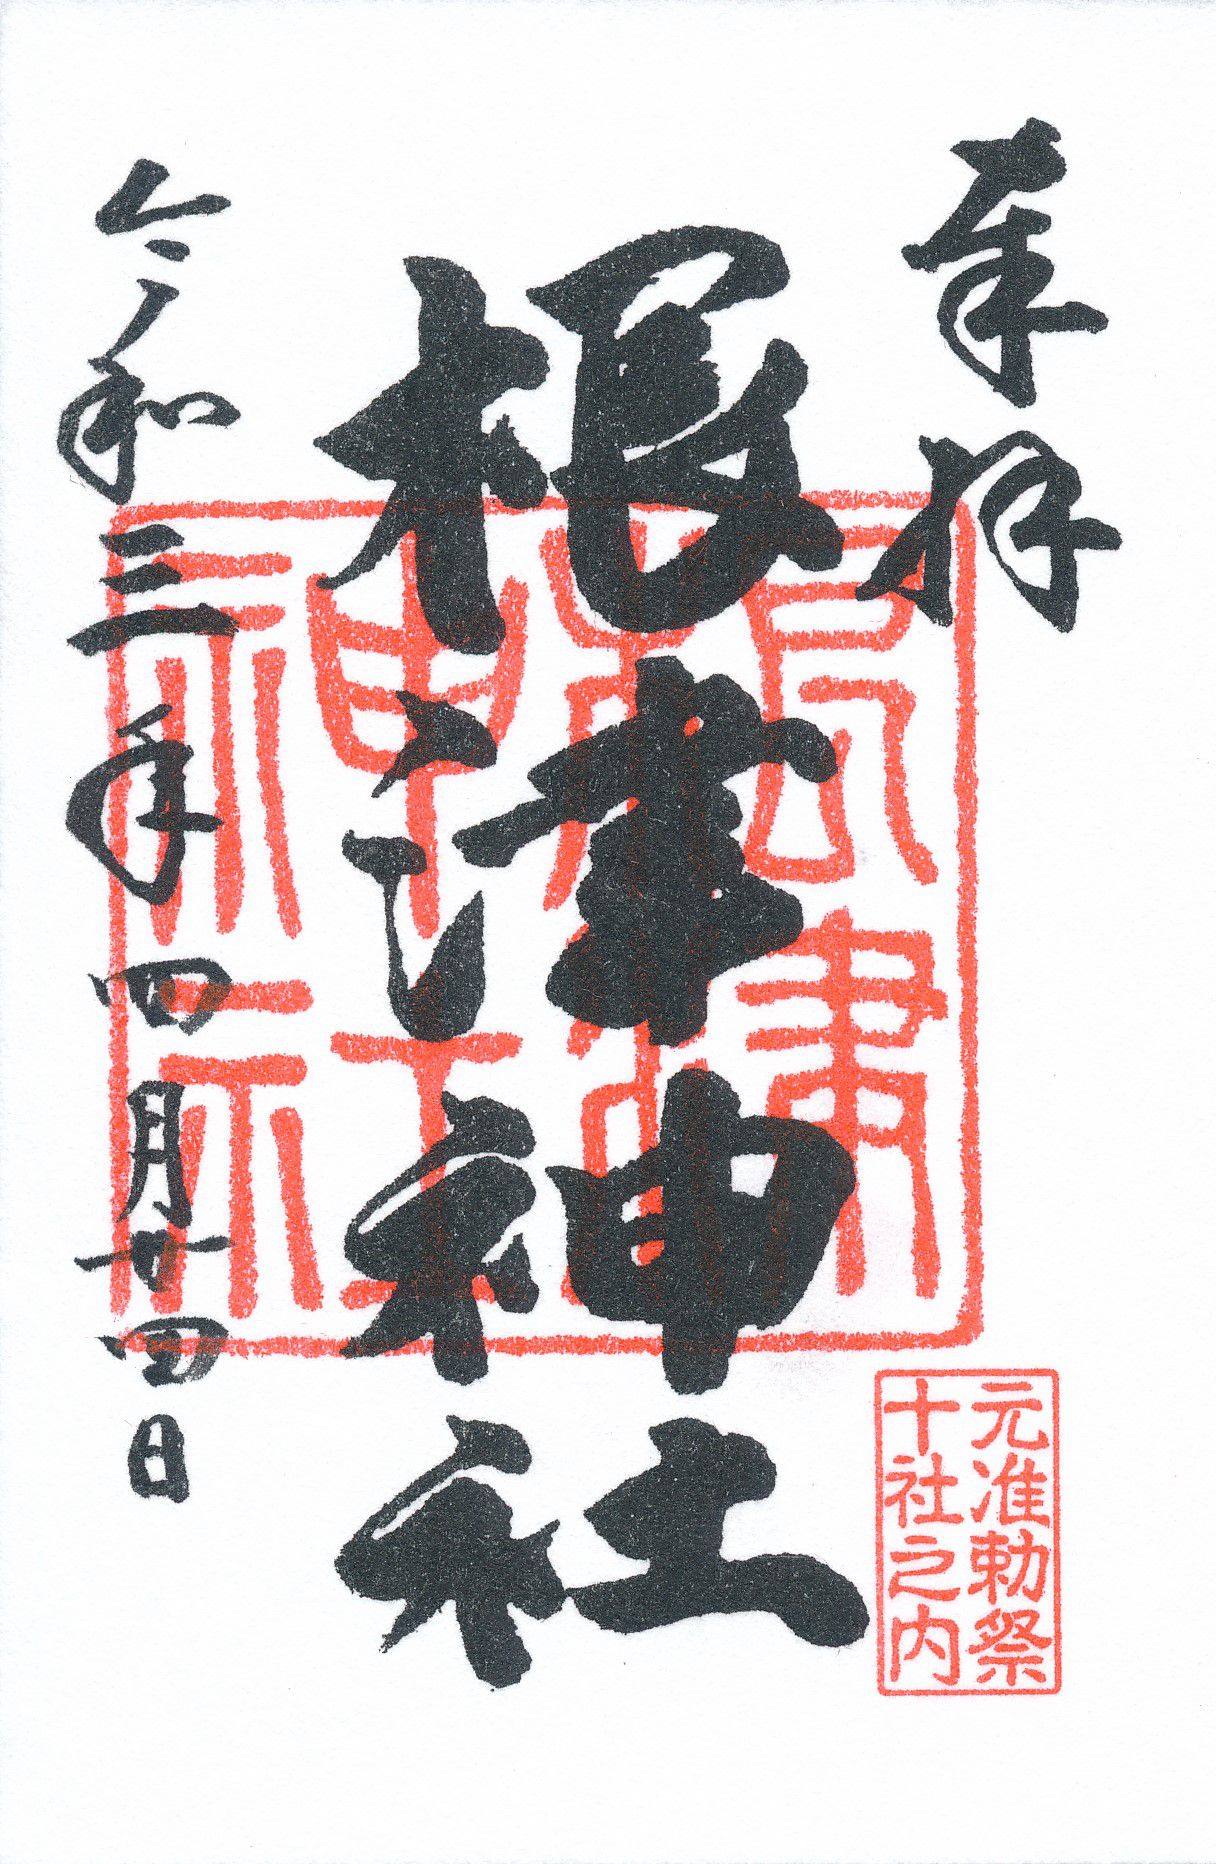 奉拝
元准勅祭
十社之内
根津神社
令和三年四月廿四日